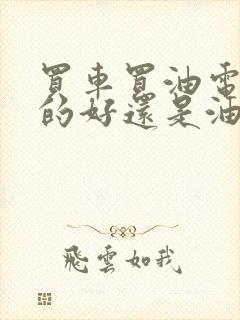 買車買油電
的好還是油
飛雲如我